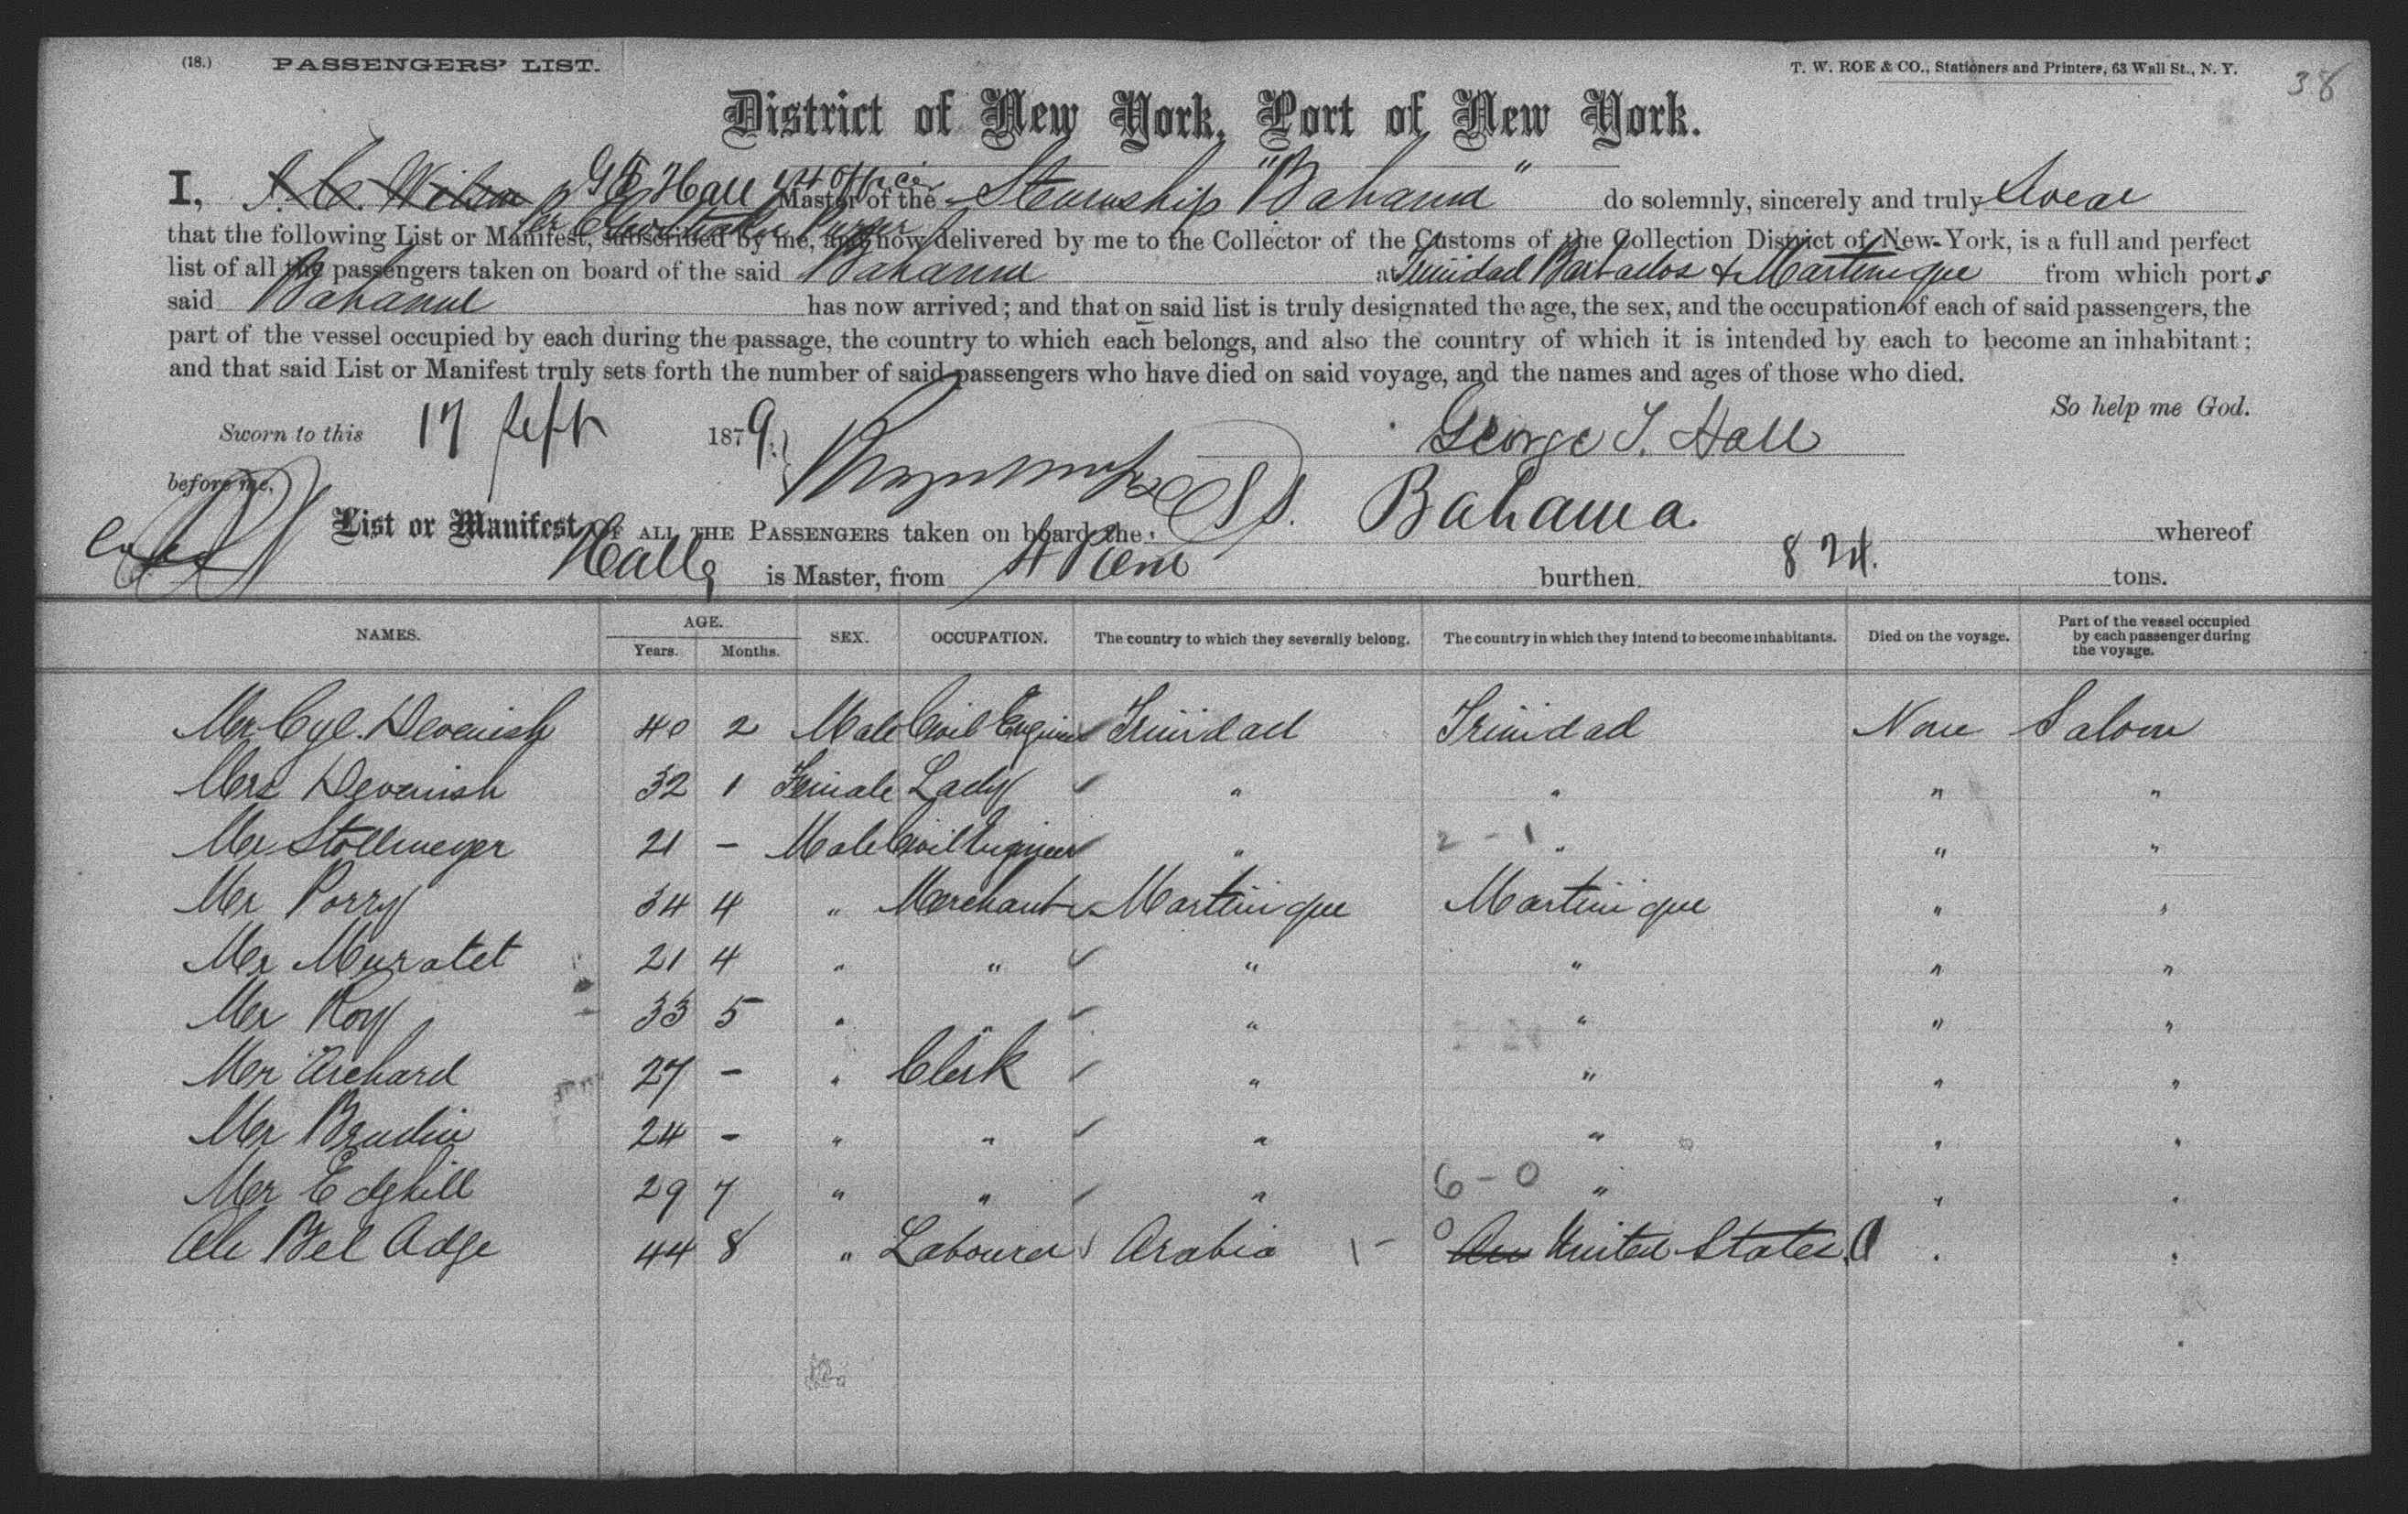 (18.) PASSENGERS' LIST. T. W. ROE & CO., Stationers and Printers, 63 Wall St., N. Y. 38
District of New York, Port of New York.
I, Wilson Hall Officer Master of the Steamship "Bahama" do solemnly, sincerely and truly Swear
Purser
that the following List or Manifest, subscribed by me, and now delivered by me to the Collector of the Customs of the Collection District of New-York, is a full and perfect
list of all the passengers taken on board of the said Bahama at Trinidad Barbados & Martinique from which ports
said Bahama has now arrived; and that on said list is truly designated the age, the sex, and the occupation of each of said passengers, the
part of the vessel occupied by each during the passage, the country to which each belongs, and also the country of which it is intended by each to become an inhabitant;
and that said List or Manifest truly sets forth the number of said passengers who have died on said voyage, and the names and ages of those who died.
So help me God.
Sworn to this 17 Sept 1879. George T. Hall
before me,
List or Manifest OF ALL THE PASSENGERS taken on board the SS. Bahama. whereof
Hall is Master, from burthen 824. tons.
NAMES. AGE. Years. Months. SEX. OCCUPATION. The country to which they severally belong. The country in which they intend to become inhabitants. Died on the voyage. Part of the vessel occupied by each passenger during the voyage.
Mr Cyl. Devenish 40 2 Male Civil Engineer Trinidad Trinidad None Saloon
Mrs Devenish 32 1 Female Lady " " " "
Mr Stollmeyer 21 - Male Civil Engineer " 2 - 1 " " "
Mr Porry 34 4 " Merchant Martinique Martinique " "
Mr Muratet 21 4 " " " " " "
Mr Roy 33 5 " " " " " "
Mr Archard 27 - " Clerk " " " "
Mr Brudin 24 - " " " " " "
Mr Edghill 29 7 " " " 6 - 0 " " "
Ale Bel Adge 44 8 " Labourer Arabia 1 - 0 United States " "